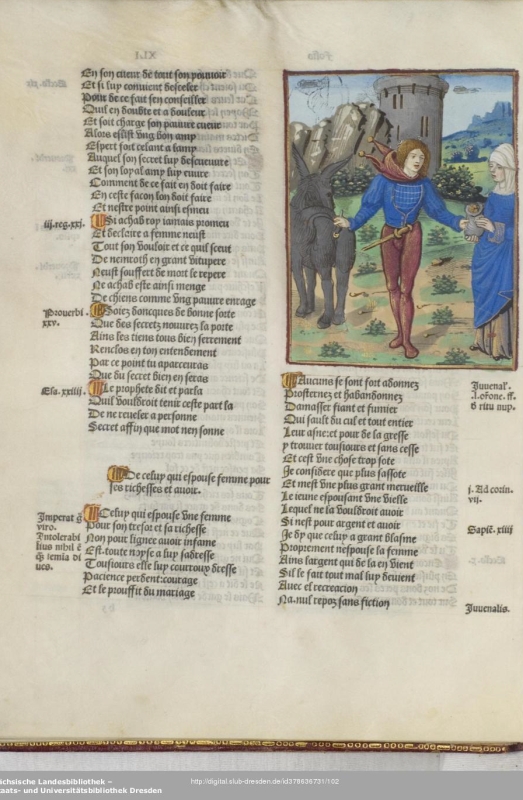 XLI
En son cueur de tout son pouuoir
Et si luy conuient desceler
Pour de ce fait sen conseiller
Quil en doubte et a douleur
Et soit charge son pauure cueur
Alors eslist vng bon amy
Expert soit celant a lamy
Auquel son secret luy descueuure
Et son loyal amy luy euure
Comment de ce fait en doit faire
En ceste facon lon doit faire
Et nestre point ainsi esmeu
iij. reg. xxi.
Si achab roy iamais promeu
Et declaire a femme neust
Tout son vouloir et ce quil sceut
De nemroth en grant vitupere
Neust souffert de mort le repere
Ne achab este ainsi menge
De chiens comme vng pauure enrage
Prouerbi.
xxv.
Soiez doncques de bonne sorte
Que des secretz nouurez la porte
Ains les tiens tous bien serrement
Renclos en ton entendement
Par ce point tu aparceuras
Que du secret bien en seras
Esa. xxiiij.
Le prophete dit et parla
Quil vouldroit tenir ceste part la
De ne reueler a personne
Secret affin que mot nen sonne
De celuy qui espouse femme pour
ses richesses et auoir.
Imperat q̃
viro.
Intolerabi
lius nihil ē
q̃
Celuy qui espouse vne femme
Pour son tresor et sa richesse
Non pour lignee auoir infame
Est. toute noyse a luy sadresse
Tousiours elle luy courroux dresse
Pacience perdent: courage
Et le prouffit du mariage
Folio
Aucuns se sont fort adonnez
Prosternez et habandonnez
Damasser fiant et fumier
Qui sault du cul et tout entier
Leur asne: et pour de la gresse
y trouuer tousiours et sans cesse
Et cest vne chose trop sote
Je considere que plus sassote
Et mest vne plus grant merueille
Le ieune espousant vne vielle
Lequel ne la vouldroit auoir
Si nest pour argent et auoir
Je dy que celuy a grant blasme
Proprement nespouse la femme
Ains largent qui de la en vient
Sil le fait tout mal luy deuient
Auec el recreacion
Na. nul repoz sans fiction
Juuenal.
j. Ad corin.
vij.
Sapiẽ. xiiij
Juuenalis.
ächsische Landesbibliothek –
taats- und Universitätsbibliothek Dresden
http://digital.slub-dresden.de/id378636731/102